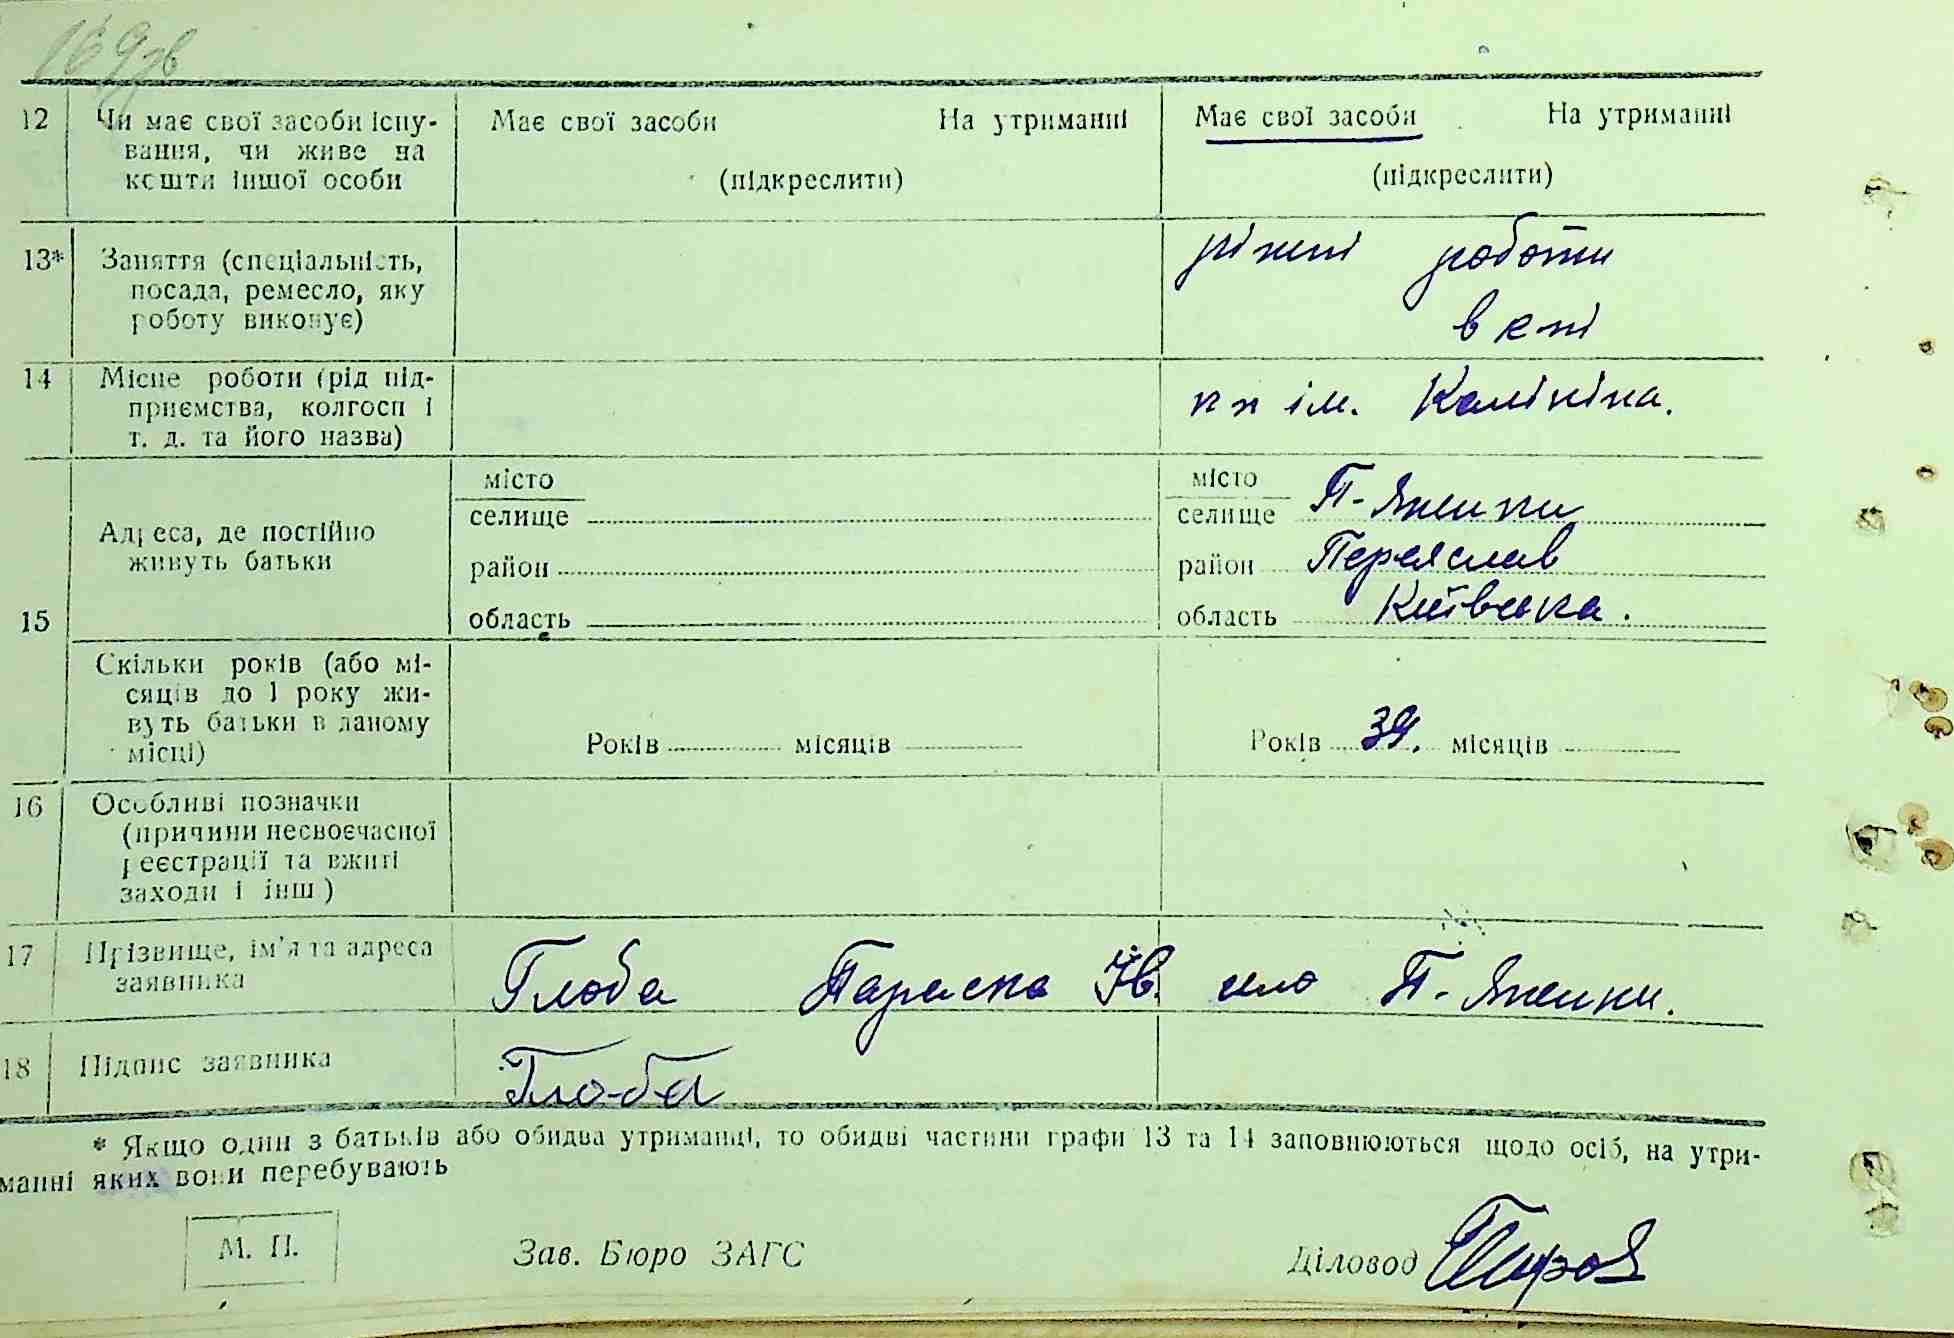 169зв
12 Чи має свої засоби існу- Має свої засоби На утриманні Має свої засоби На утриманні
вання, чи живе на
кошти іншої особи (підкреслити) (підкреслити)
13* Заняття (спеціальність, ріжні роботи
посада, ремесло, яку
роботу виконує) в кпі
14 Місце роботи (рід під-
приємства, колгосп і кп ім. Калініна.
т. д. та його назва)
місто місто
Адреса, де постійно селище селище П-Яненки
живуть батьки район район Переяслав
15 область область Київська.
Скільки років (або мі-
сяців до 1 року жи-
вуть батьки в даному
місці) Років місяців Років 39. місяців
16 Особливі позначки
(причини несвоєчасної
реєстрації та вжиті
заходи і інш)
17 Прізвище, ім'я та адреса
заявника Глоба Параска Ів. село П-Яненки.
18 Підпис заявника Глоба
* Якщо один з батьків або обидва утриманці, то обидві частини графи 13 та 14 заповнюються щодо осіб, на утри-
манні яких вони перебувають
М. П. Зав. Бюро ЗАГС Діловод